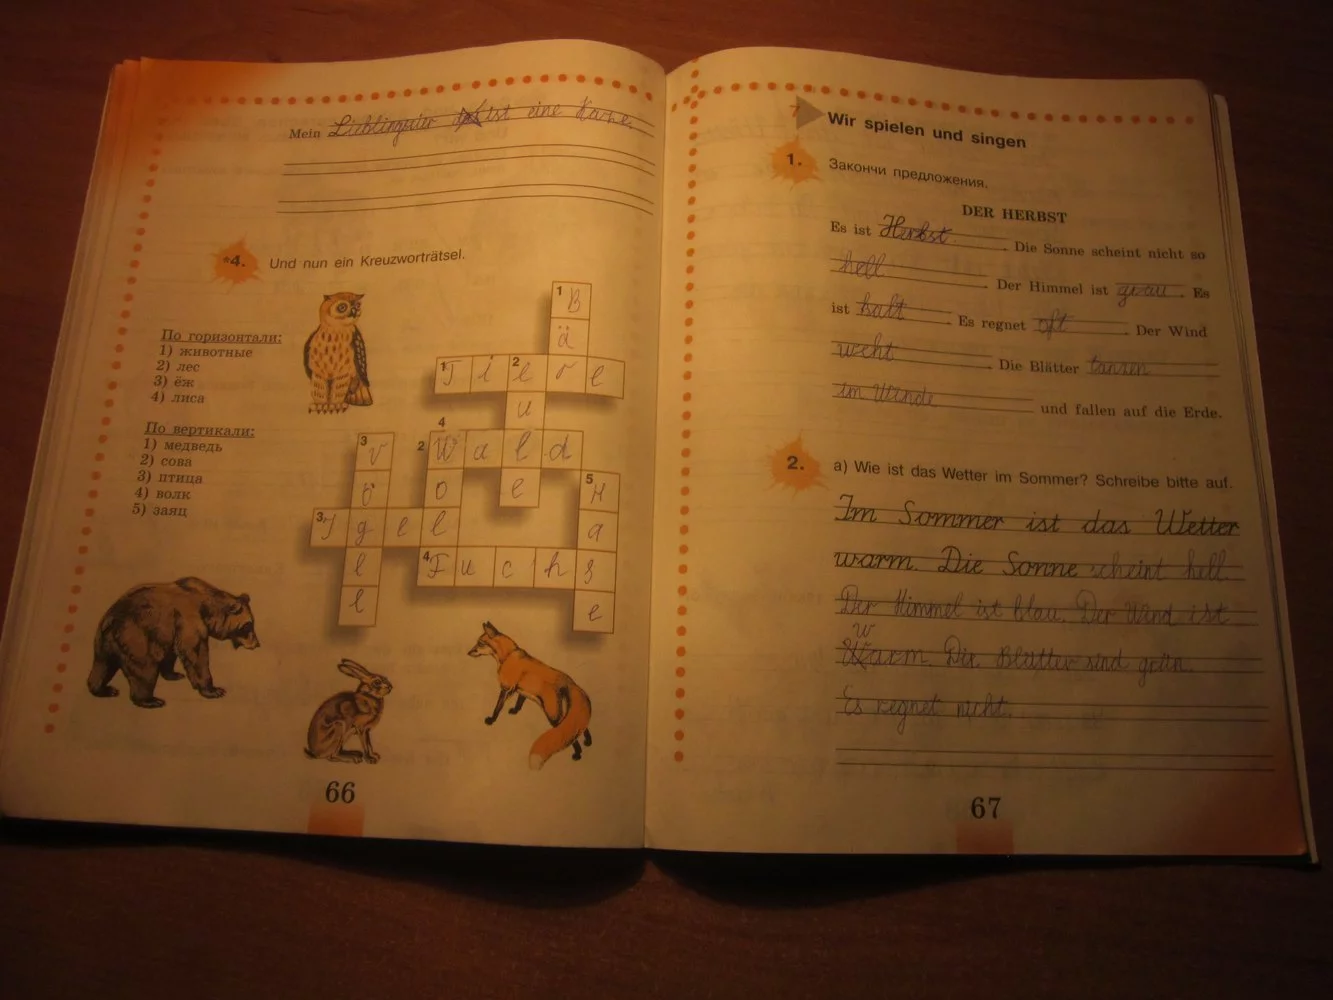 Mein Lieblingstier ist eine Katze.
*4. Und nun ein Kreuzworträtsel.
По горизонтали:
1) животные
2) лес
3) ёж
4) лиса
По вертикали:
1) медведь
2) сова
3) птица
4) волк
5) заяц
1 B
ä
1 T i 2 e r e
u
4
3 V 2 W a l d
ö o e 5 H
3 I g e l a
e 4 F u c h s
l e
66
7
Wir spielen und singen
1. Закончи предложения.
DER HERBST
Es ist Herbst. Die Sonne scheint nicht so
hell. Der Himmel ist grau. Es
ist kalt. Es regnet oft. Der Wind
weht. Die Blätter tanzen
im Winde und fallen auf die Erde.
2. a) Wie ist das Wetter im Sommer? Schreibe bitte auf.
Im Sommer ist das Wetter
warm. Die Sonne scheint hell.
Der Himmel ist blau. Der Wind ist
w
Warm. Die Blätter sind grün.
Es regnet nicht.
67